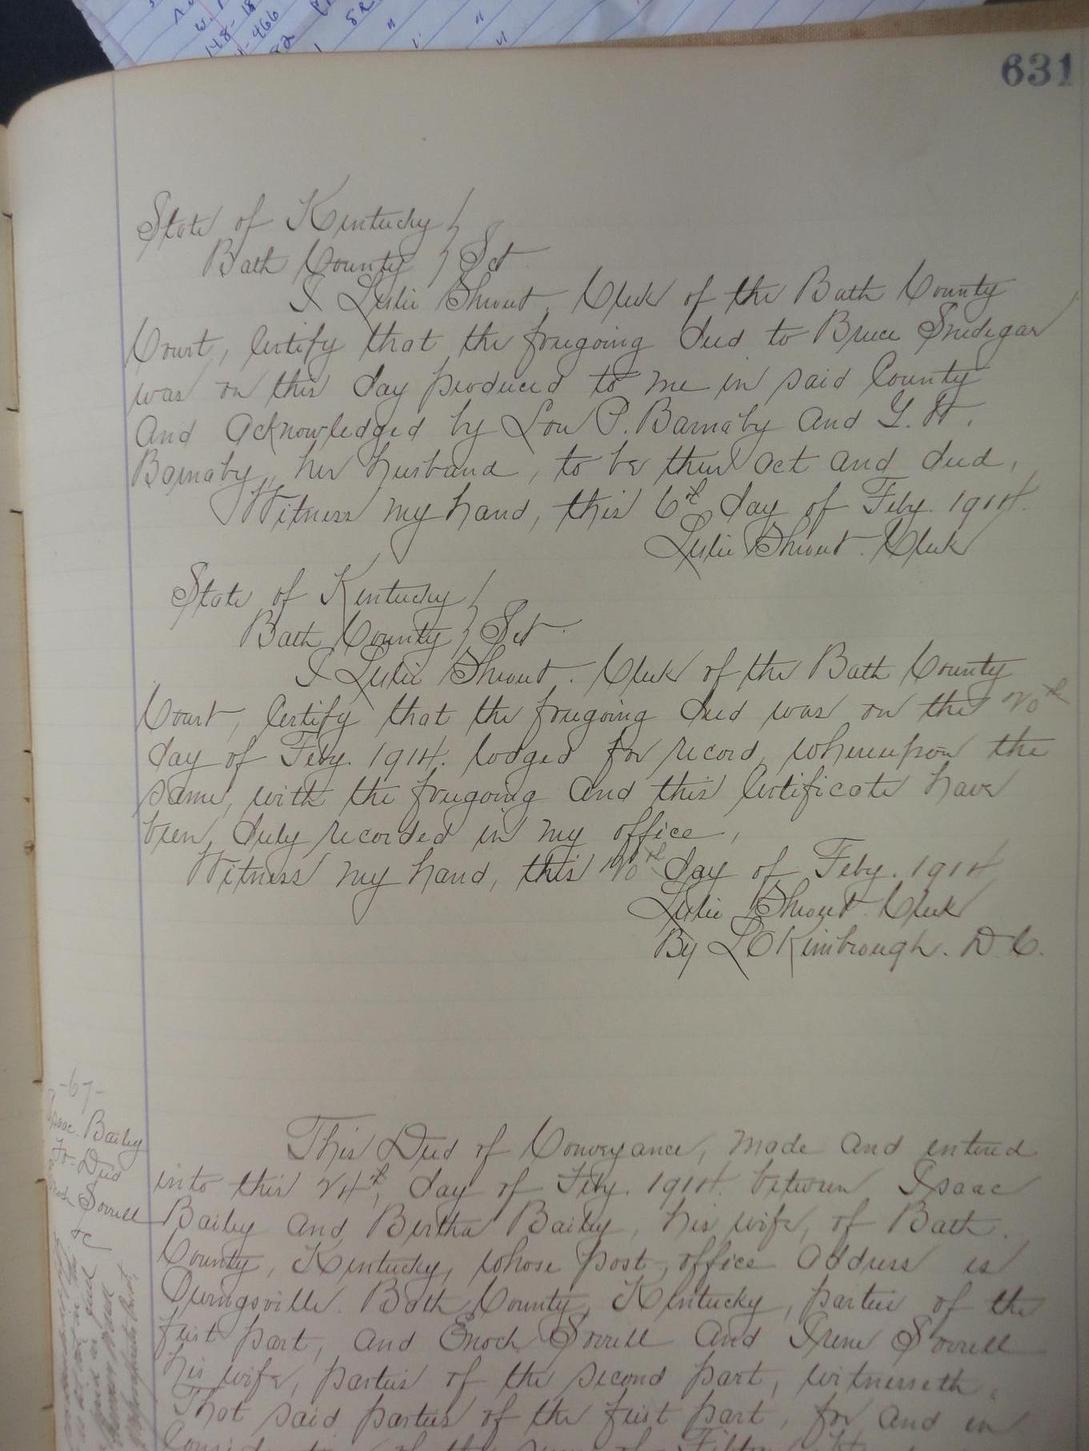 148-18
466
631
State of Kentucky }
Bath County } Sct
I Leslie Shrout, Clerk of the Bath County
Court, Certify that the foregoing deed to Bruce Snedegar
was on this day produced to me in said County
and acknowledged by Lou P. Barnaby and Y. H.
Barnaby, her husband, to be their act and deed,
Witness my hand, this 6th day of Feby. 1914.
Leslie Shrout. Clerk
State of Kentucky }
Bath County } Sct.
I Leslie Shrout. Clerk of the Bath County
Court, Certify that the foregoing deed was on the 20th
day of Feby. 1914. lodged for record, whereupon the
same, with the foregoing and this Certificate have
been, duly recorded in my office,
Witness my hand, this 20th day of Feby. 1914
Leslie Shrout. Clerk
By L C Kimbrough. D. C.
-67-
Isaac Bailey
To-Deed
Enoch Sorrell
&c
This Deed of Conveyance, made and entered
into this 24th, day of Feby. 1914. between Isaac
Bailey and Bertha Bailey, his wife, of Bath.
County, Kentucky, whose post, office address is
Owingsville. Bath County, Kentucky, parties of the
first part, and Enoch Sorrell and Irene Sorrell
his wife, parties of the second part, witnesseth.
That said parties of the first part, for and in
Consideration of the sum of